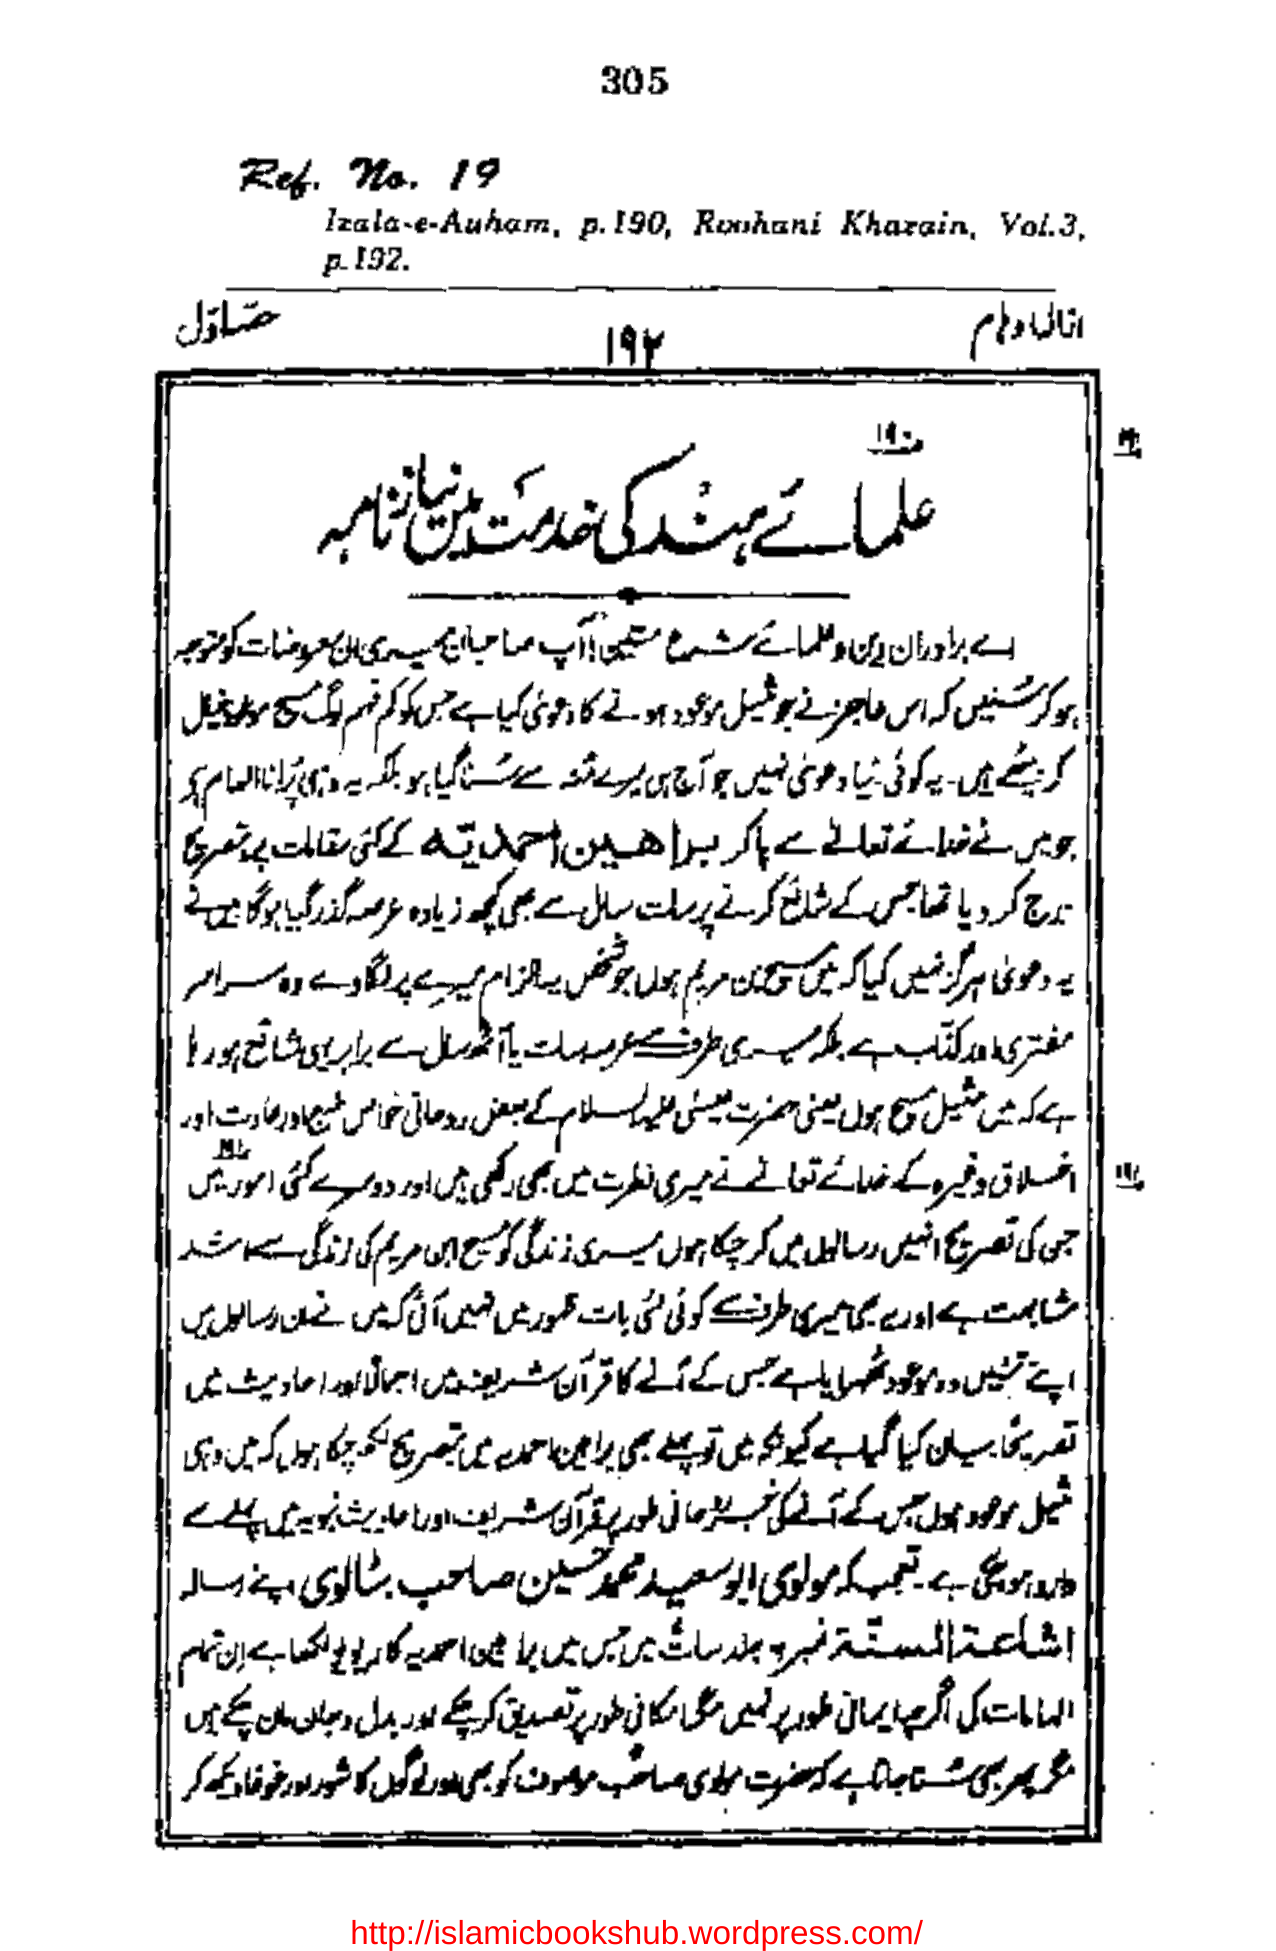 305
Ref. No. 19
Izala-e-Auham, p.190, Roohani Khazain, Vol.3,
p.192.
ازالہ اوہام
۱۹۲
حصہ اوّل
ص۱۹۰
علمائے ہند کی خدمت میں نیاز نامہ
اے برادران دین و علمائے شرع متین! آپ صاحبان میری ان معروضات کو متوجہ
ہو کر سُنیں کہ اس عاجز نے جو مثیل موعود ہونے کا دعویٰ کیا ہے جس کو کم فہم لوگ مسیح موعود خیال
کر بیٹھے ہیں۔ یہ کوئی نیا دعویٰ نہیں جو آج ہی میرے مُنہ سے سُنا گیا ہو بلکہ یہ وہی پُرانا الہام ہے
جو میں نے خدائے تعالےٰ سے پا کر براھین احمدیّہ کے کئی مقامات پر بتصریح
درج کر دیا تھا جس کے شائع کرنے پر سات سال سے بھی کچھ زیادہ عرصہ گذر گیا ہوگا میں نے
یہ دعویٰ ہرگز نہیں کیا کہ میں مسیح بن مریم ہوں جو شخص یہ الزام میرے پر لگاوے وہ سراسر
مفتری اور کذّاب ہے بلکہ میری طرف سے عرصہ سات یا آٹھ سال سے برابر یہی شائع ہو رہا
ہے کہ میں مثیل مسیح ہوں یعنی حضرت عیسیٰ علیہ السلام کے بعض روحانی خواص طبع اور عادت اور
اخلاق وغیرہ کے خدائے تعالےٰ نے میری فطرت میں بھی رکھی ہیں اور دوسرے کئی امور میں
جن کی تصریح انہیں رسالوں میں کر چکا ہوں میری زندگی کو مسیح ابن مریم کی زندگی سے اشد
مشابہت ہے اور یہ بھی میری طرف سے کوئی نئی بات ظہور میں نہیں آئی کہ میں نے ان رسالوں میں
اپنے تئیں وہ موعود ٹھہرایا ہے جس کے آنے کا قرآن شریف میں اجمالاً اور احادیث میں
تصریحاً بیان کیا گیا ہے کیونکہ میں تو پہلے بھی براہین احمدیہ میں بتصریح لکھ چکا ہوں کہ میں وہی
مثیل موعود ہوں جس کے آنے کی خبر روحانی طور پر قرآن شریف اور احادیث نبویہ میں پہلے سے
وارد ہو چکی ہے۔ تعجب کہ مولوی ابو سعید محمد حسین صاحب بٹالوی اپنے رسالہ
اشاعۃ السنّۃ نمبر۶ جلد سات میں جس میں براہین احمدیہ کا ریویو لکھا ہے ان تمام
الہامات کی اگرچہ ایمانی طور پر نہیں مگر امکانی طور پر تصدیق کر چکے اور بدل و جان مان چکے ہیں
مگر پھر بھی سُنا جاتا ہے کہ حضرت مولوی صاحب موصوف کو بھی اور لوگوں کا شور اور غوغا دیکھ کر
http://islamicbookshub.wordpress.com/